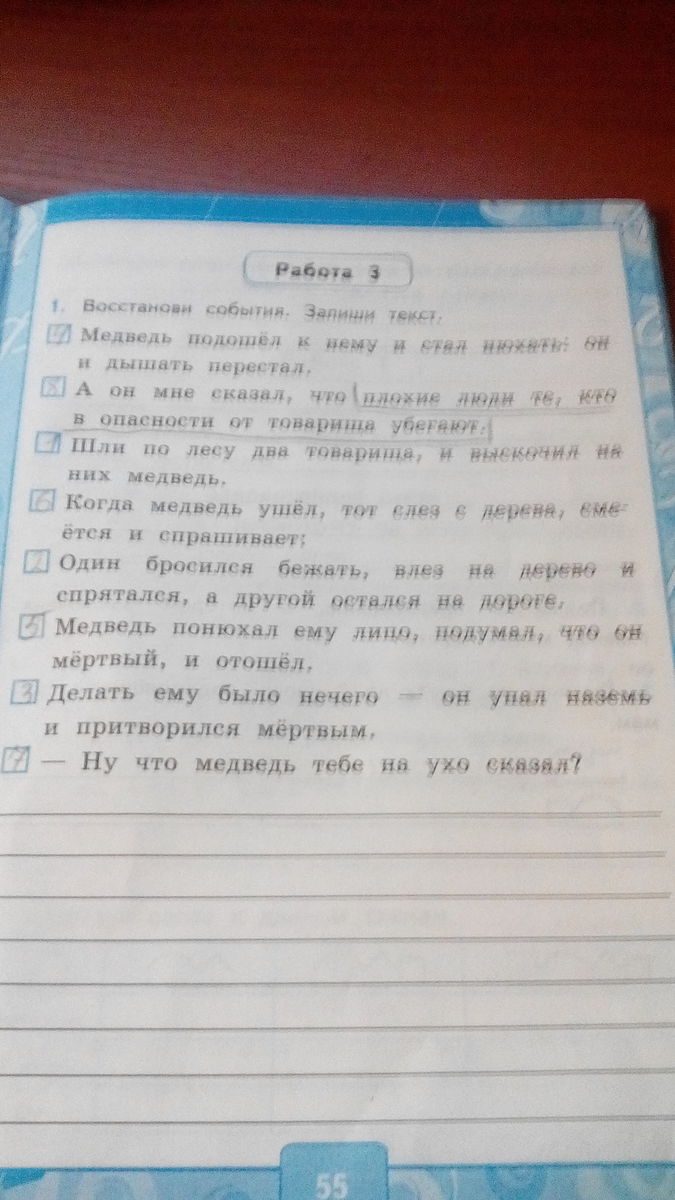 Работа 3
1. Восстанови события. Запиши текст.
4 Медведь подошёл к нему и стал нюхать: он
и дышать перестал.
8 А он мне сказал, что плохие люди те, кто
в опасности от товарища убегают.
1 Шли по лесу два товарища, и выскочил на
них медведь.
6 Когда медведь ушёл, тот слез с дерева, сме-
ётся и спрашивает:
2 Один бросился бежать, влез на дерево и
спрятался, а другой остался на дороге.
5 Медведь понюхал ему лицо, подумал, что он
мёртвый, и отошёл.
3 Делать ему было нечего — он упал наземь
и притворился мёртвым.
7 — Ну что медведь тебе на ухо сказал?
55